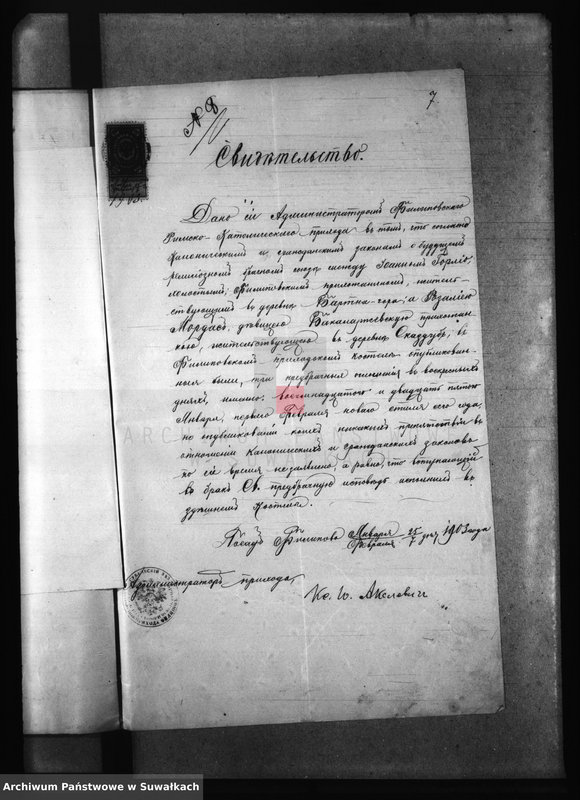 7
№ 8
Свидѣтельство.
1903
Дано сіе Администраторомъ Филиповскаго
Римско-Католическаго прихода въ томъ, что согласно
Каноническимъ и гражданскимъ законамъ о будущемъ
религіозномъ брачномъ союзѣ между Іоанномъ
холостымъ, Филиповскимъ прихожаниномъ, житель-
ствующимъ въ деревнѣ Бартна-гора, а Розаліею
Мордасъ, дѣвицею, Бакаларжевскою прихожан-
кою, жительствующею въ деревнѣ Скаддубъ, въ
Филиповскомъ приходскомъ костелѣ опубликован-
ныя были, три предбрачныя оглашенія въ воскресныхъ
дняхъ, именно: восемнадцатого и двадцать пятого
Января, перваго Февраля новаго стиля сего года,
по опубликованіи коихъ никакихъ препятствій въ
отношеніи Каноническихъ и гражданскихъ законовъ
по сіе время не заявлено, а равно, что вступающій
въ бракъ Св. предбрачную исповѣдь исполнилъ въ
здѣшнемъ Костелѣ.
Посадъ Филипово Января 25 / Февраля 7 дня 1903 года
Администраторъ прихода,
Кс. Ю. Акелевичъ
ARCHIWUM
Archiwum Państwowe w Suwałkach